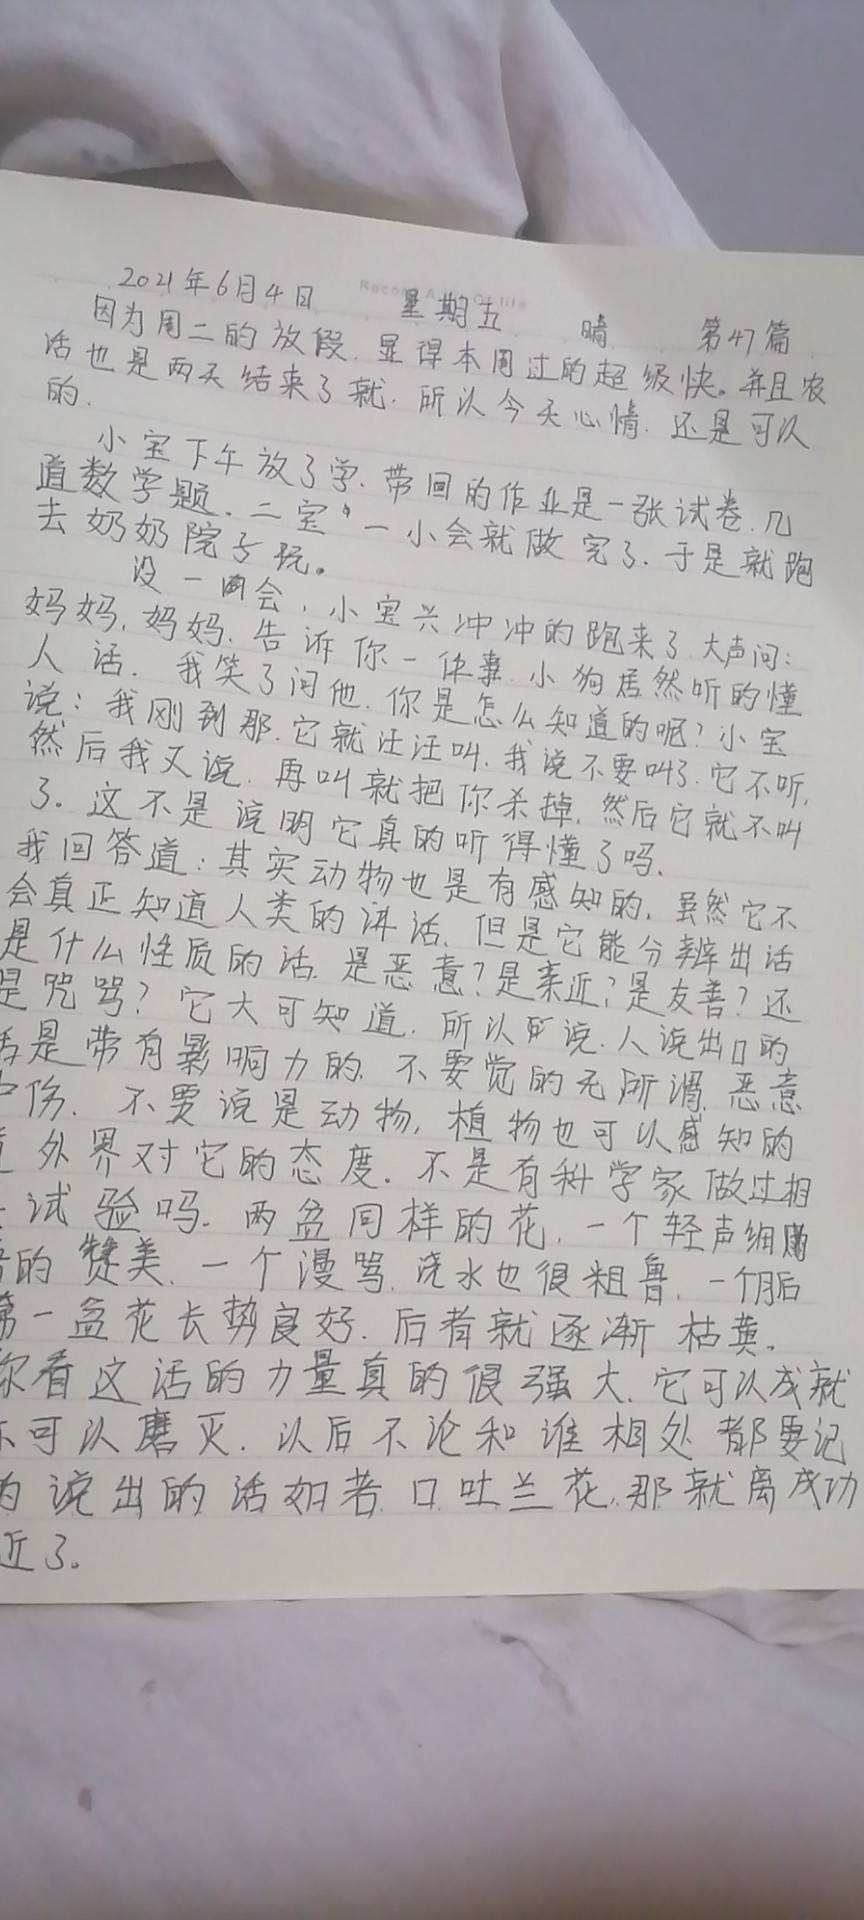 2021年6月4日 星期五 晴 第47篇
因为周二的放假.显得本周过的超级快。并且农
活也是两天结来了就.所以今天心情.还是可以
的.
小宝下午放了学.带回的作业是一张试卷.几
道数学题.二宝 一小会就做完了.于是就跑
去奶奶院子玩。
没一会,小宝兴冲冲的跑来了大声问:
妈妈,妈妈.告诉你一件事.小狗居然听的懂
人话.我笑了问他.你是怎么知道的呢?小宝
说:我刚到那.它就汪汪叫.我说不要叫了.它不听,
然后我又说.再叫就把你杀掉.然后它就不叫
了。这不是说明它真的听得懂了吗.
我回答道:其实动物也是有感知的,虽然它不
会真正知道人类的讲话.但是它能分辨出话
是什么性质的话.是恶意?是亲近?是友善?还
是咒骂?它大可知道.所以说.人说出口的
话是带有影响力的.不要觉的无所谓.恶意
伤.不要说是动物,植物也可以感知的
外界对它的态度.不是有科学家做过相
试验吗.两盆同样的花,一个轻声细
的赞美.一个漫骂.浇水也很粗鲁.一个月后
第一盆花长势良好.后者就逐渐枯黄。
你看这话的力量真的很强大.它可以成就
可以磨灭.以后不论和谁相处都要记
为说出的话如若口吐兰花.那就离成功
近了。